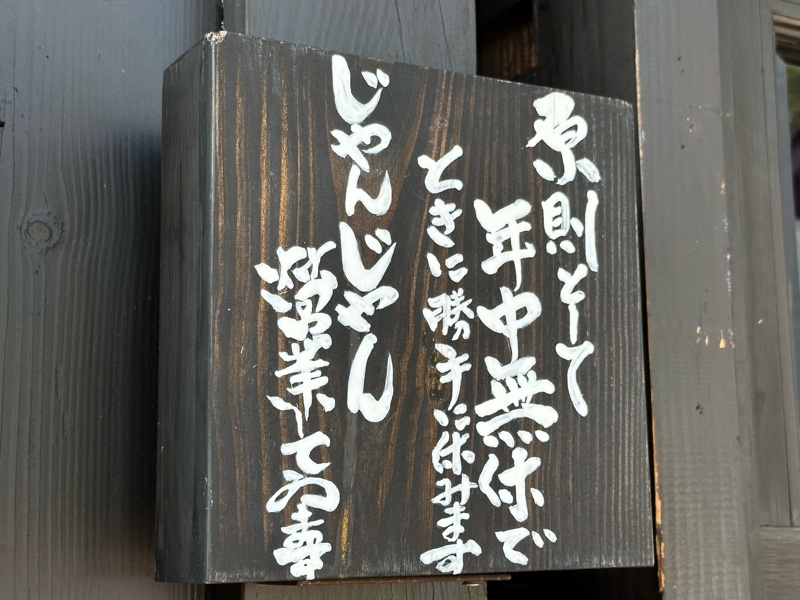 原則として
年中無休で
ときに勝手に休みます
じゃんじゃん
営業してゐ〼